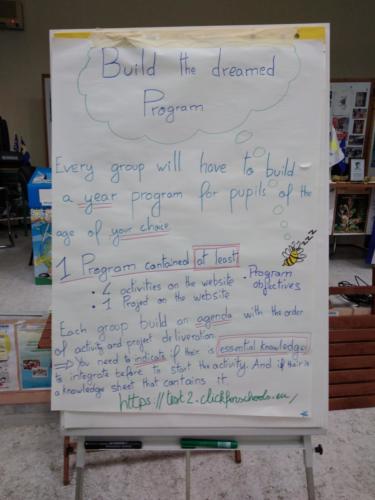 Build the dreamed
Program
Every group will have to build
a year program for pupils of the
age of your choice
1 Program contained at least
• 4 activities on the website
• 1 Project on the website
• Program
objectives
Each group build an agenda with the order
of activity and project deliveration.
⇒ You need to indicate if their is essential knowledge
to integrate before to start the activity. And if their is
a knowledge sheet that contains it.
https://test2.clickforschools.eu/